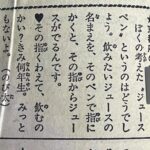 ぼくの考えた〝ジュース
ペン〟というのはどうでし
ょう。飲みたいジュースの
名まえを、そのペンで指に
かくと、その指からジュー
スがでるんです。
♥その指くわえて、飲むの
かい？きみ何年生。みっと
もないよ。